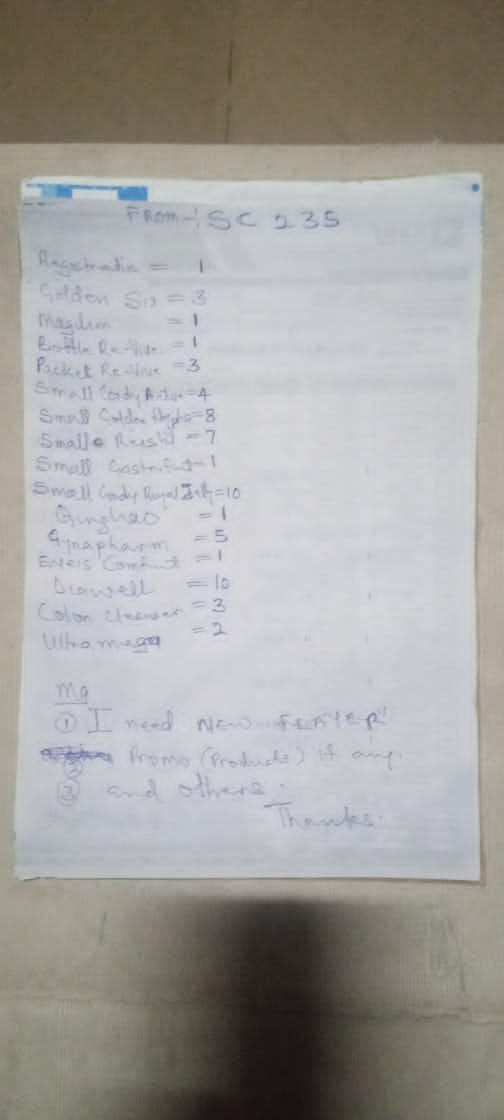 FROM-: SC 235
Registratin = 1
Golden Six = 3
= 1
Bottle Re-Vive = 1
Packet Re-Vive = 3
Small Cordy Active = 4
Small Golden Hypha = 8
Small Reeshi = 7
Small = 1
Small Cordy Royal Jelly = 10
Qinghao = 1
Gynapharm = 5
= 1
Diawell = 10
Colon Cleanser = 3
Ultra = 2
Mg
① I need NEW "FLAYER"
② Promo (Products) if any.
③ and others.
Thanks.